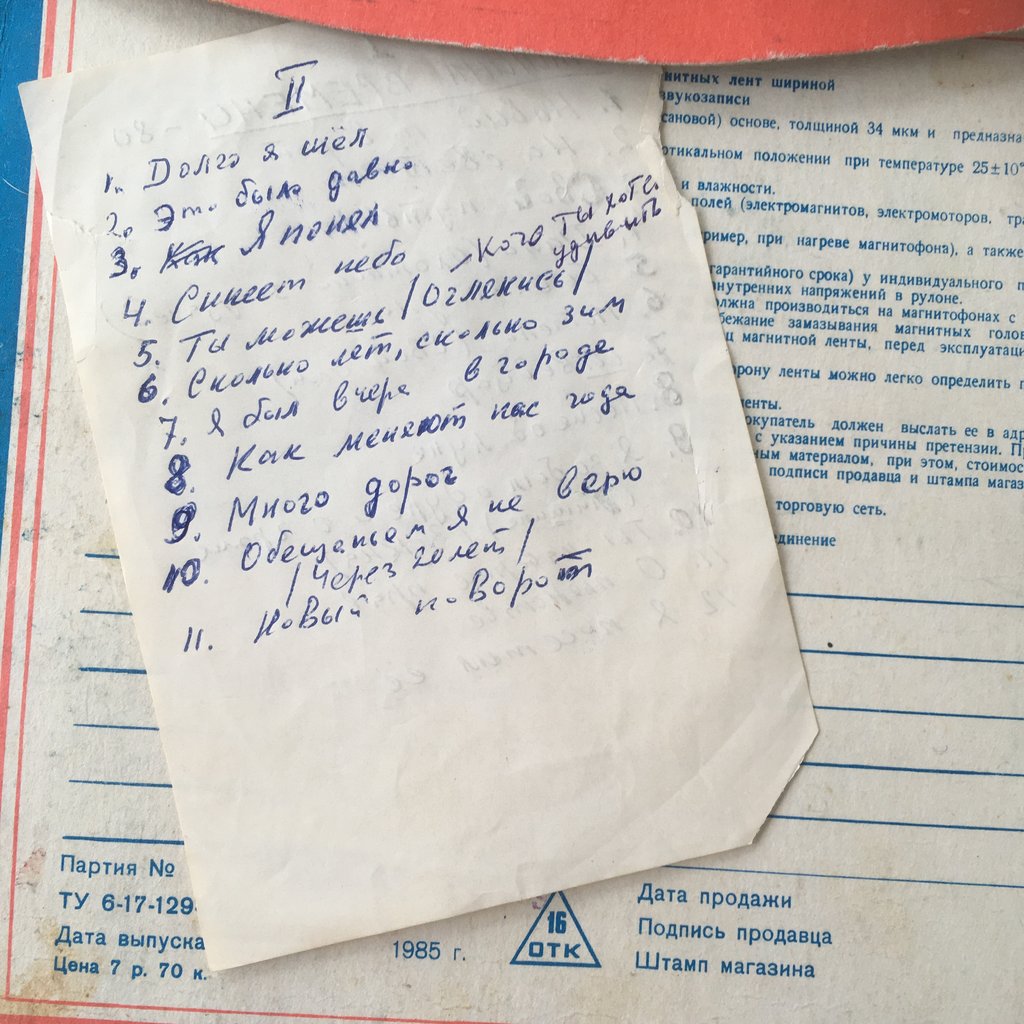 II
1. Долго я шёл
2. Это было давно
3. Как Я понял
4. Синеет небо
– Кого Ты хоте
удивить
5. Ты можешь /Оглянись/
6. Сколько лет, сколько зим
7. Я был вчера в городе
8. Как меняют нас года
9. Много дорог
10. Обещаньям я не верю
/Через 20 лет/
11. Новый поворот
нитных лент шириной
звукозаписи
сановой) основе, толщиной 34 мкм и предназна
ртикальном положении при температуре 25±10°
и влажности.
полей (электромагнитов, электромоторов, тра
ример, при нагреве магнитофона), а также
гарантийного срока) у индивидуального п
нутренних напряжений в рулоне.
олжна производиться на магнитофонах с
бежание замазывания магнитных голов
ц магнитной ленты, перед эксплуатаци
орону ленты можно легко определить п
енты.
окупатель должен выслать ее в адр
с указанием причины претензии. Пр
ным материалом, при этом, стоимос
подписи продавца и штампа мага
торговую сеть.
единение
Партия №
ТУ 6-17-129
Дата выпуска
Цена 7 р. 70 к.
1985 г.
16
ОТК
Дата продажи
Подпись продавца
Штамп магазина